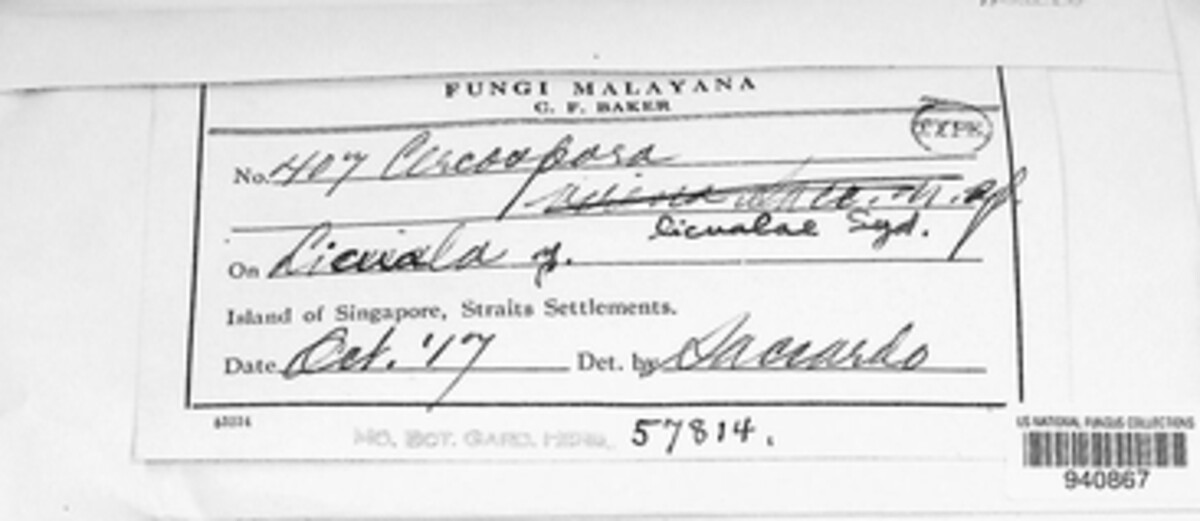 FUNGI MALAYANA
C. F. BAKER
TYPE
No. 407 Cercospora
Sacc. n. sp
licualae Syd.
On Licuala
Island of Singapore, Straits Settlements.
Date Oct. '17 Det. by Saccardo
MO. BOT. GARD. HERB. 57814.
US NATIONAL FUNGUS COLLECTIONS
940867